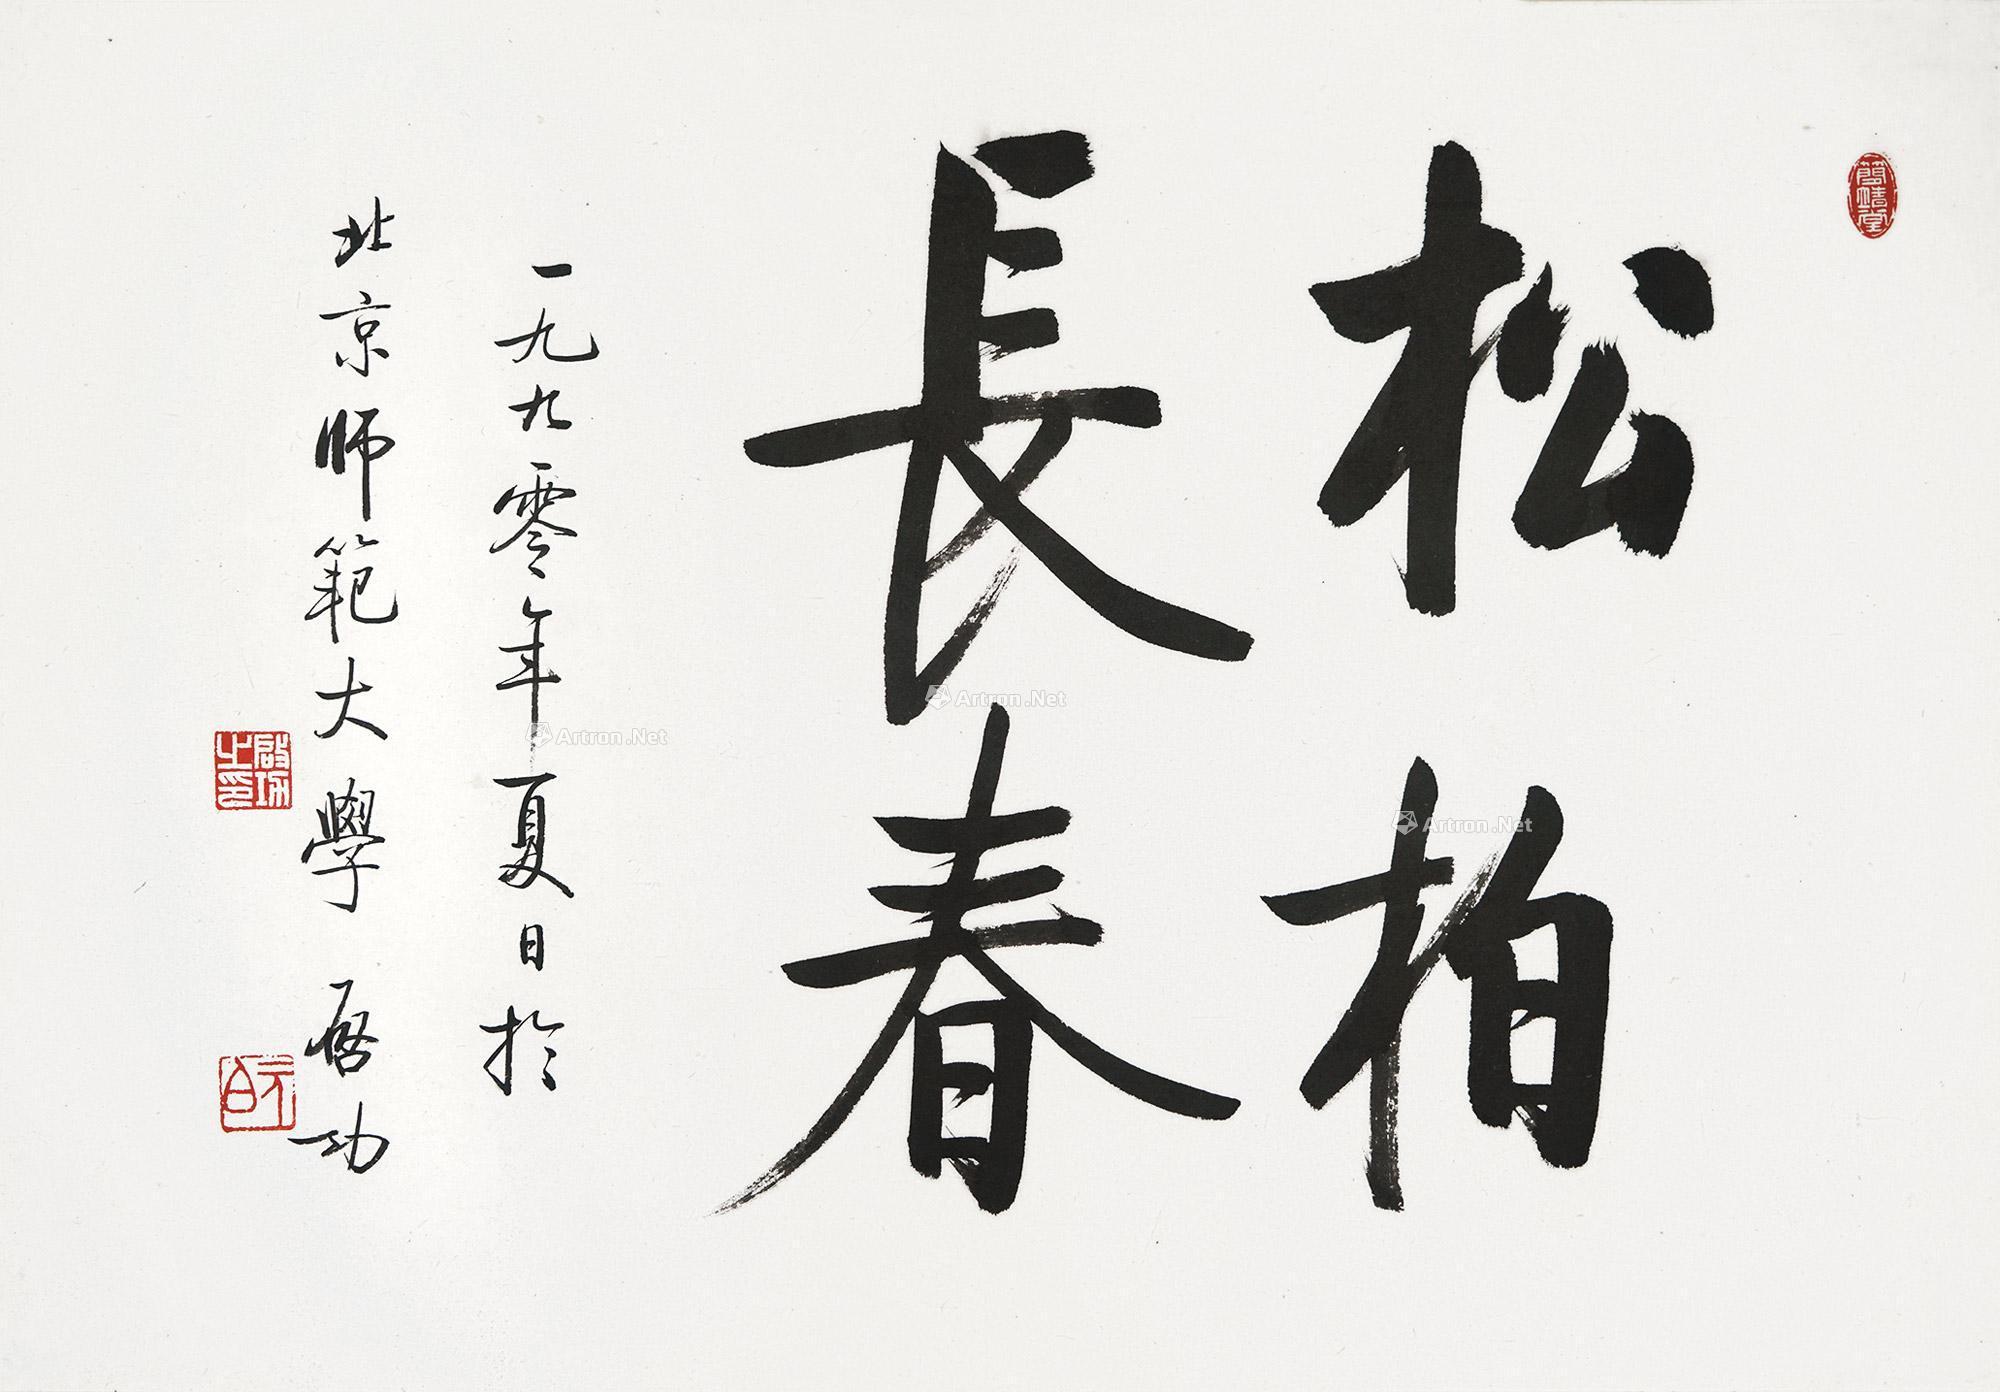 松柏
長春
一九九零年夏日於
北京师範大學 啓功
簡靖堂
啟功之印
元白
Artron.Net
Artron.Net
Artron.Net